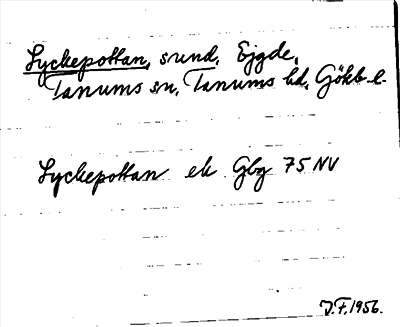 Lyckepottan, sund, Ejgde,
Tanums sn, Tanums hd, Gökb l.
Lyckepottan ek Gbg 75 NV
J.F. 1956.